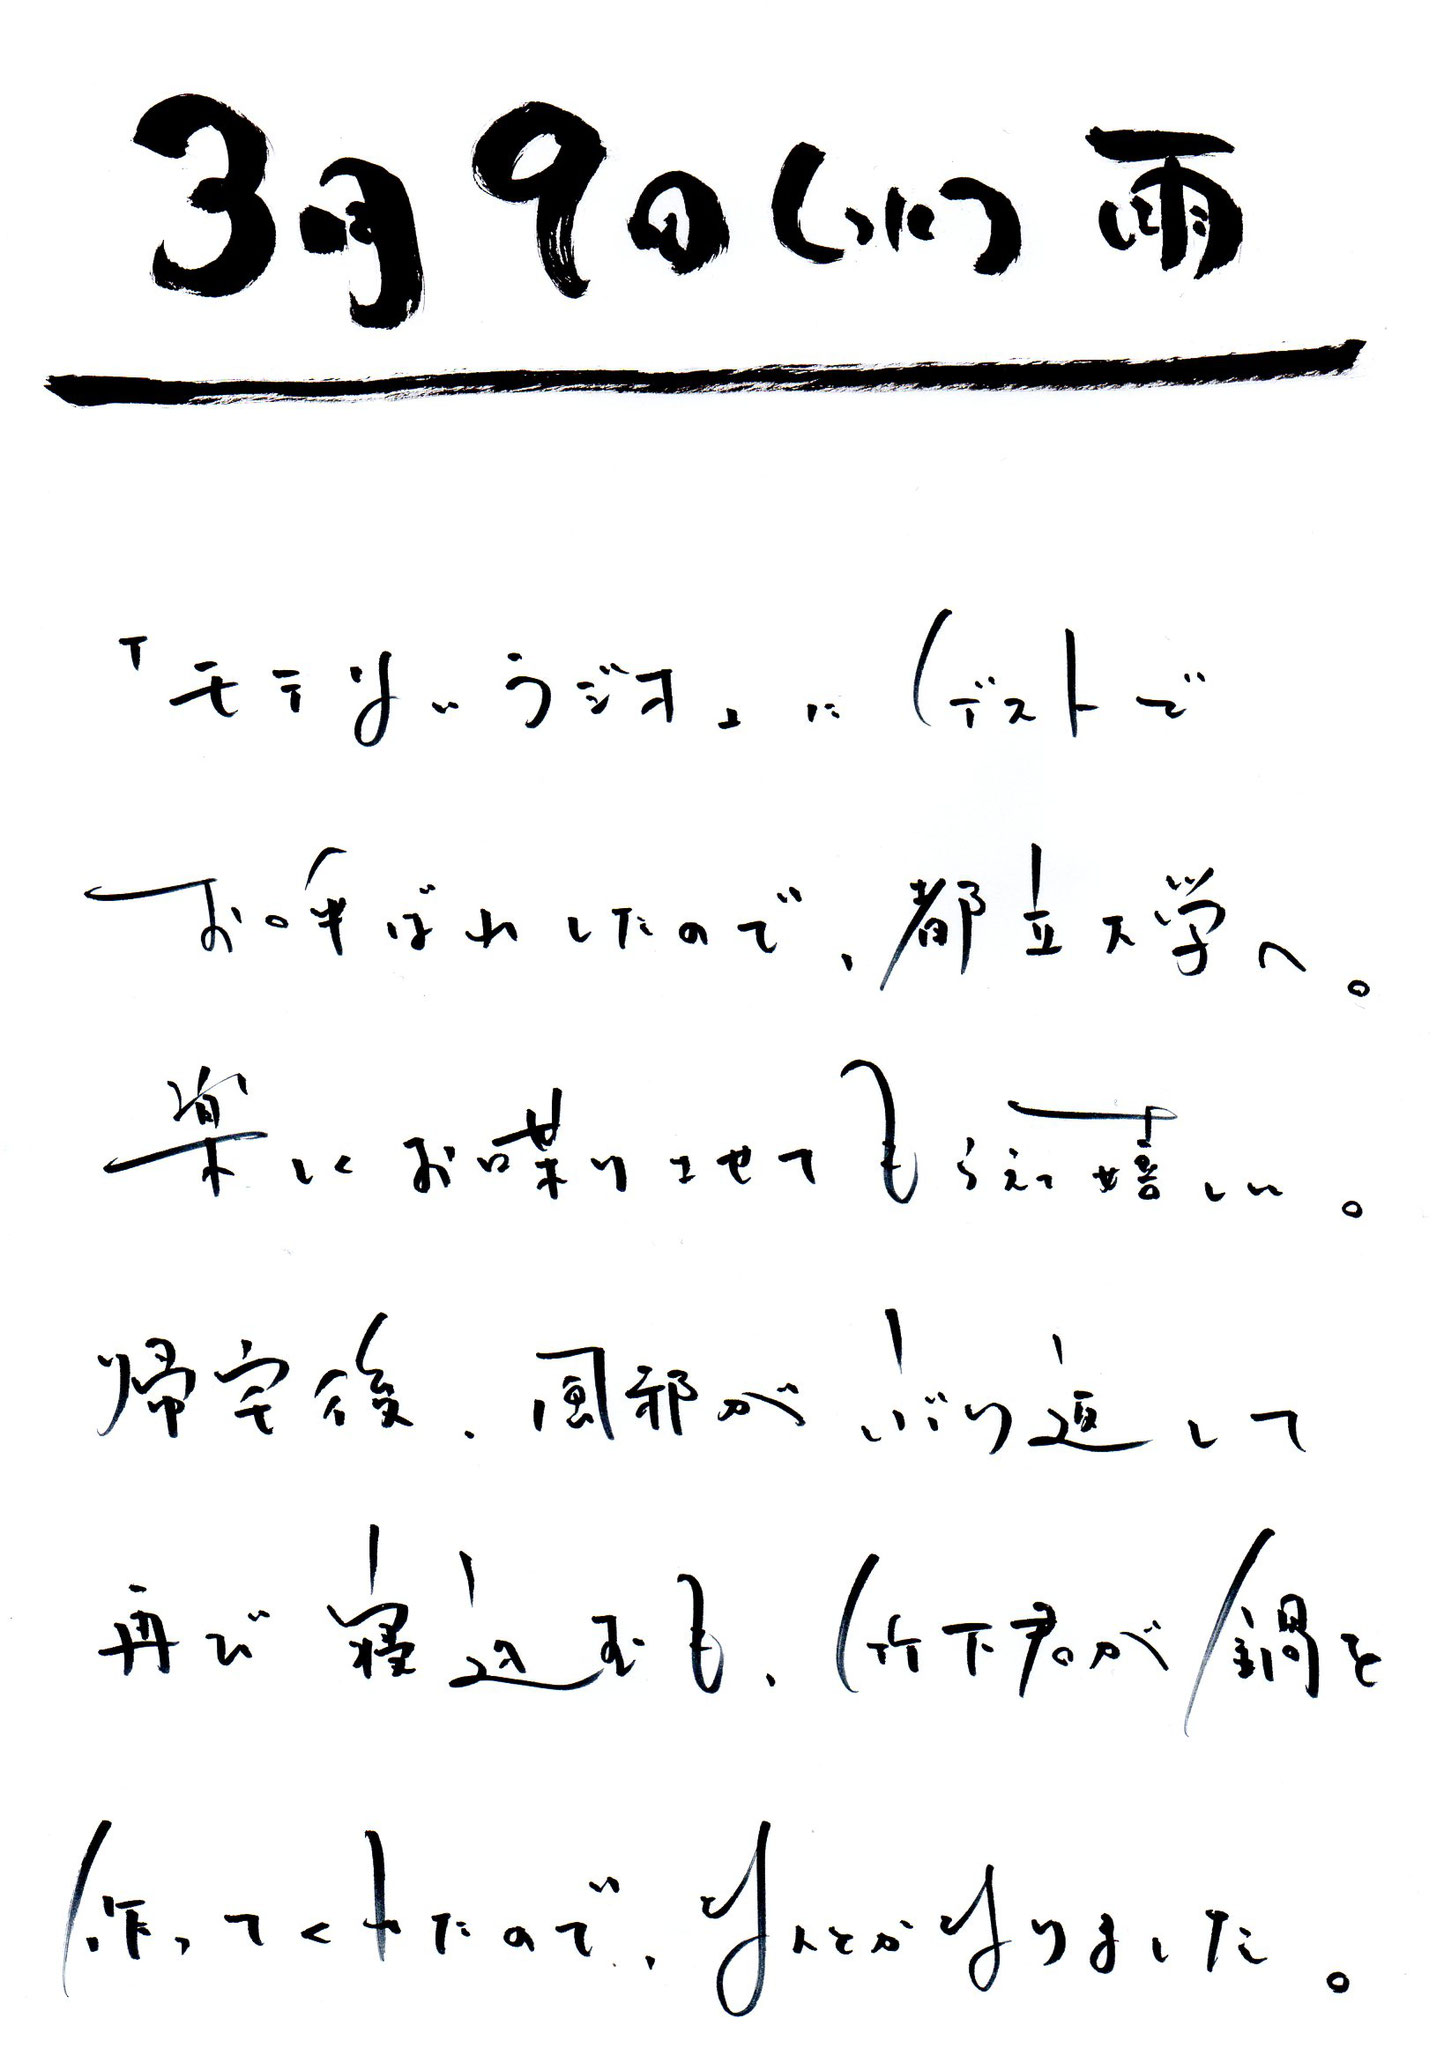 3月9日(水)雨
「モテないラジオ」にゲストで
お呼ばれしたので、都立大学へ。
楽しくお喋りさせてもらえて嬉しい。
帰宅後、風邪がぶり返して
再び寝込むも、竹下君が鍋を
作ってくれたので、なんとかなりました。